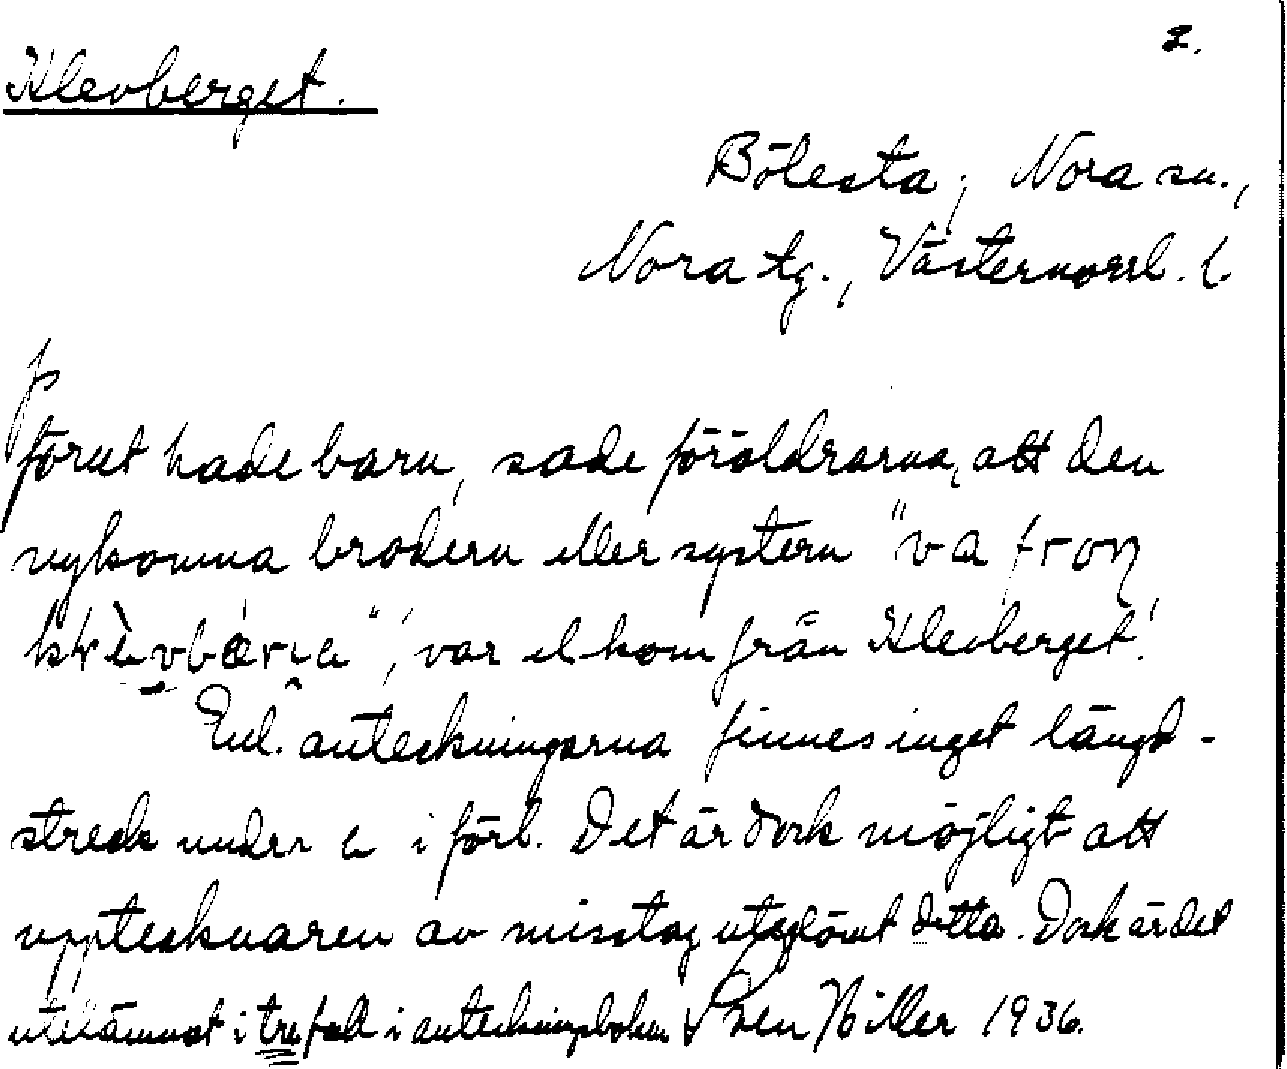 2.
Klevberget.
Bölesta, Nora sn.,
Nora tg., Västernorrl. l.
förut hade barn, sade föräldrarna, att den
nykomna brodern eller systern "va fron
", 'var el kom från Klevberget'.
Enl. anteckningarna finnes inget längd-
streck under e i förl. Det är dock möjligt att
upptecknaren av misstag utelämnat detta. Dock är det
utelämnat i tre fall i anteckningsboken Sven Hiller 1936.